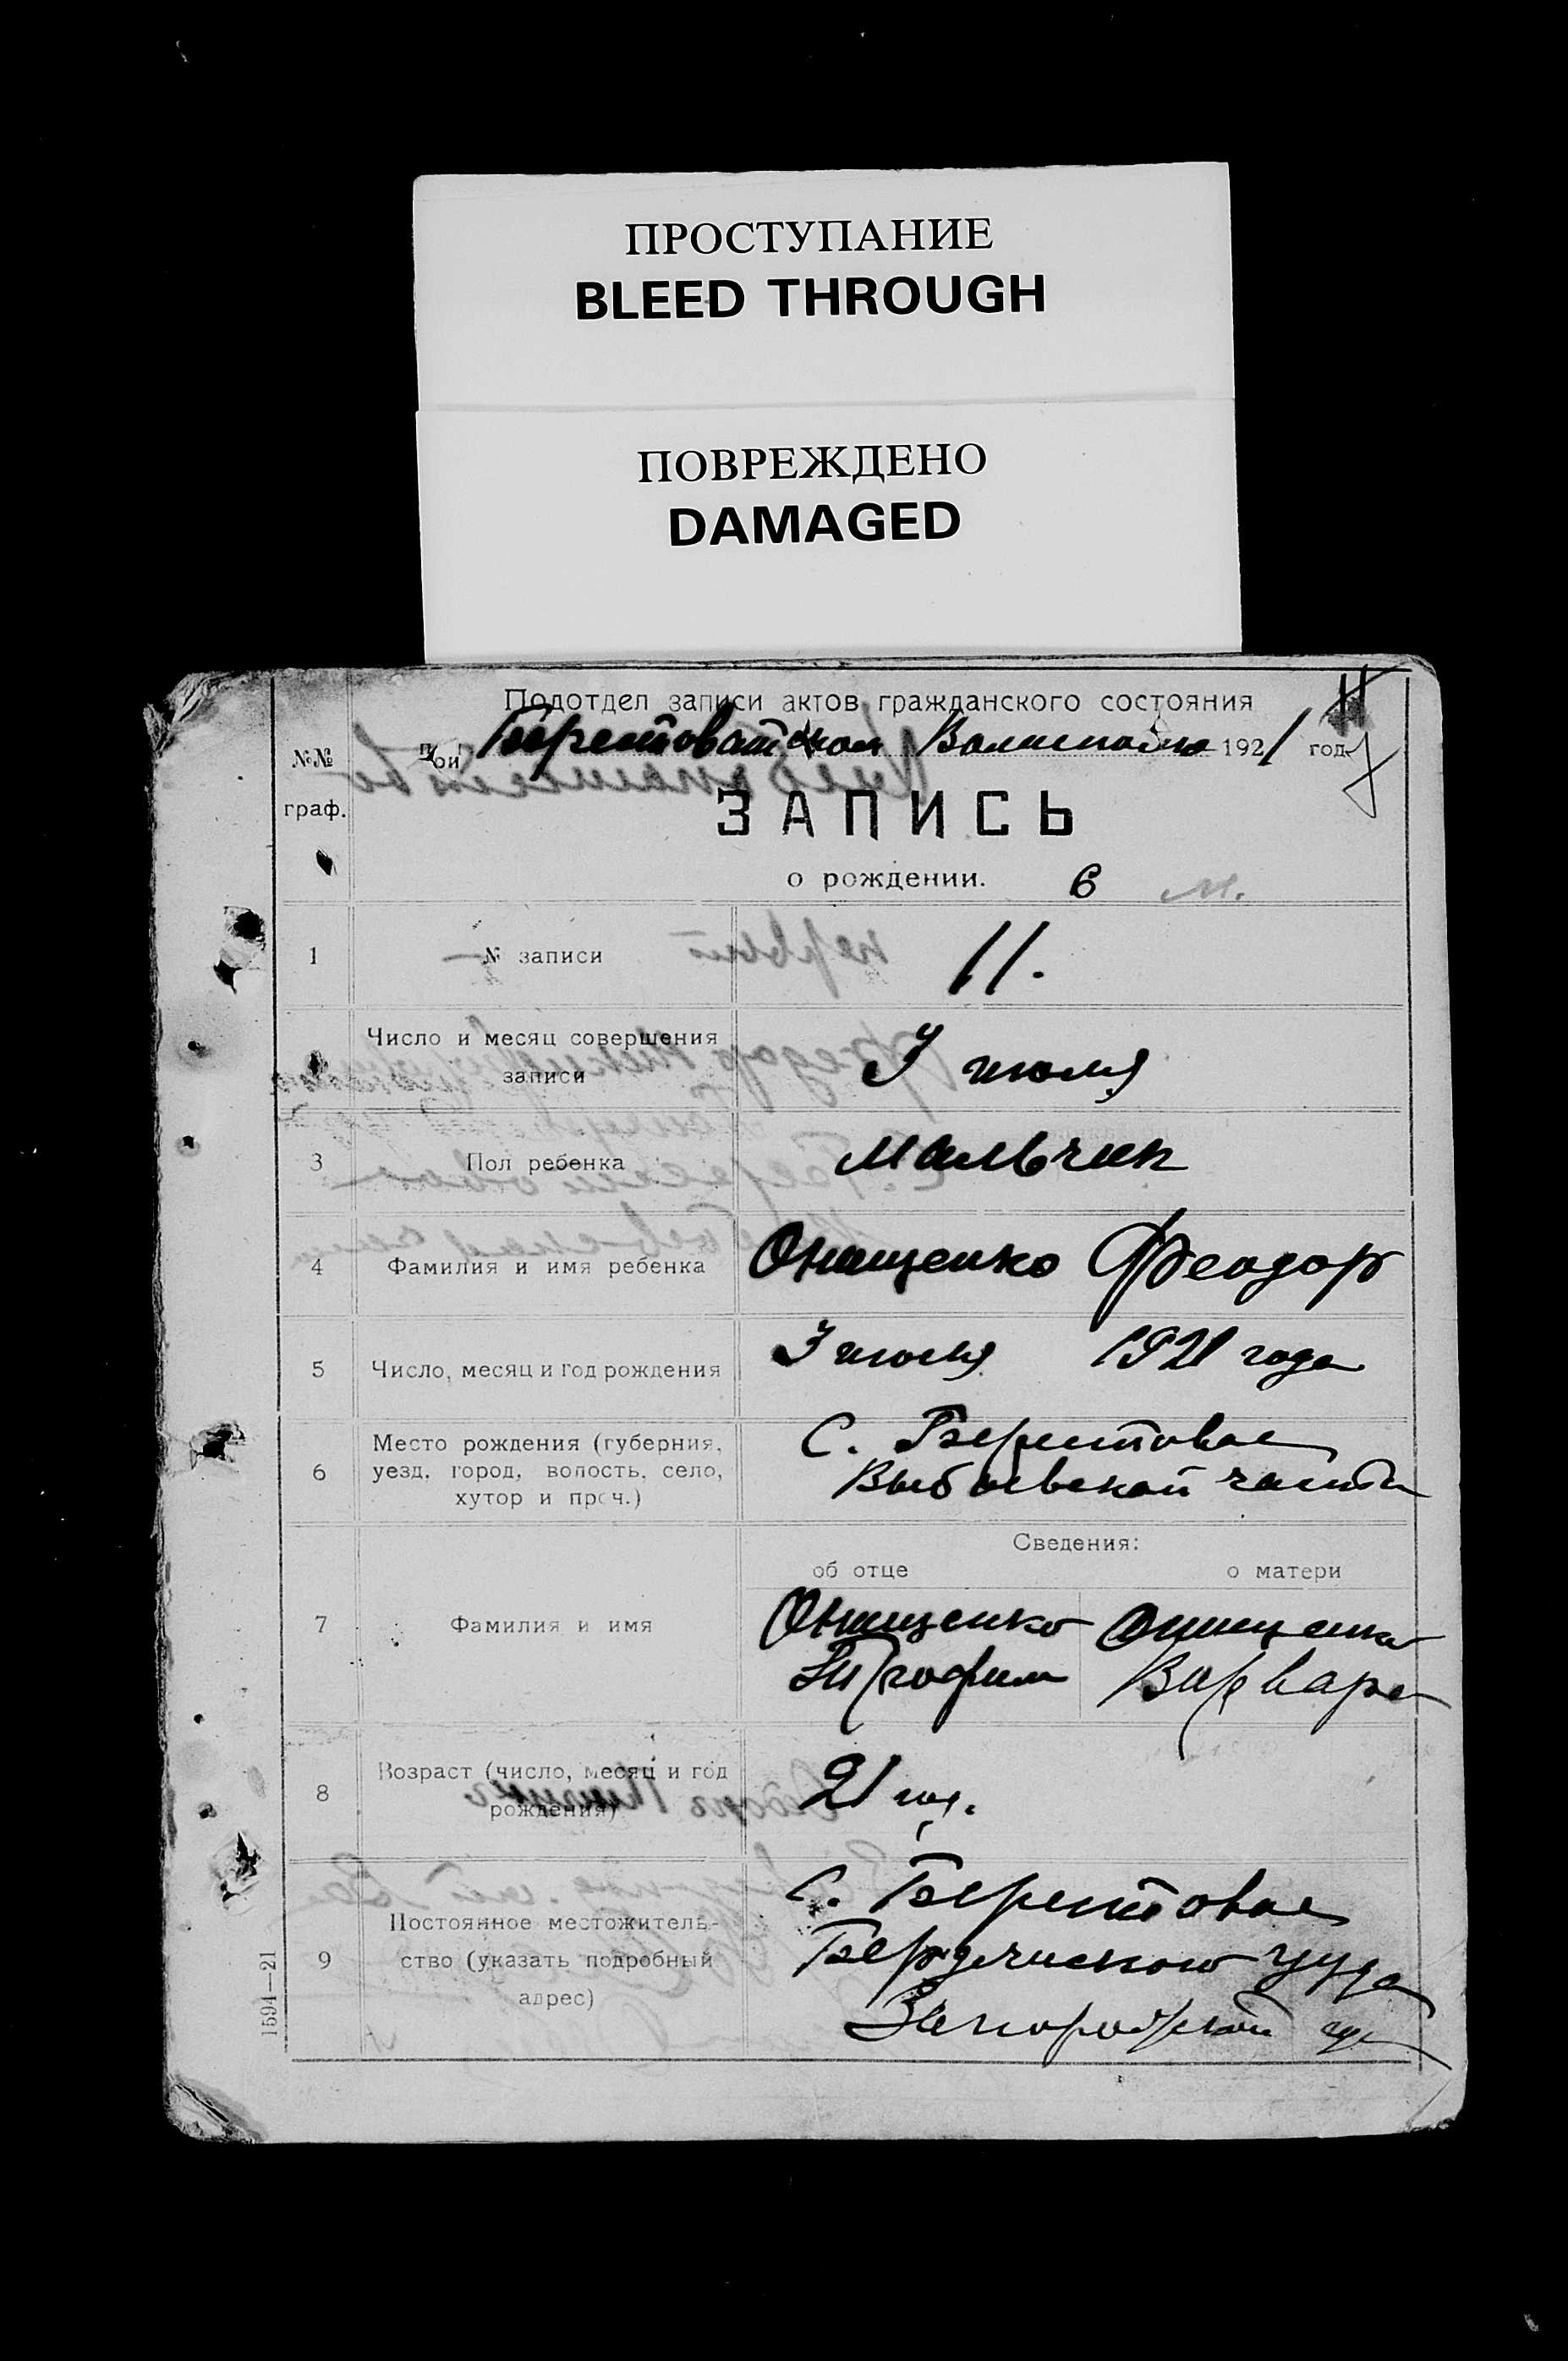 ПРОСТУПАНИЕ
BLEED THROUGH
ПОВРЕЖДЕНО
DAMAGED
Подотдел записи актов гражданского состояния
при Берестоватском Волисполко 1921 год
№№
граф.
ЗАПИСЬ
о рождении. 6 м.
1 № записи 11.
Число и месяц совершения
записи
июля
3 Пол ребенка Мальчик
4 Фамилия и имя ребенка Онищенко Феодор
5 Число, месяц и год рождения 3 июля 1921 года
Место рождения (губерния,
6 уезд, город, волость, село,
хутор и проч.)
С. Берестовое
части
Сведения:
об отце о матери
7 Фамилия и имя
Онищенко Онищенко
Трофим Варвара
8 Возраст (число, месяц и год
рождения)
21 год.
9 Постоянное местожитель-
ство (указать подробный
адрес)
С. Берестовое
Бердянского уезда
Запорожской гу
1594—21